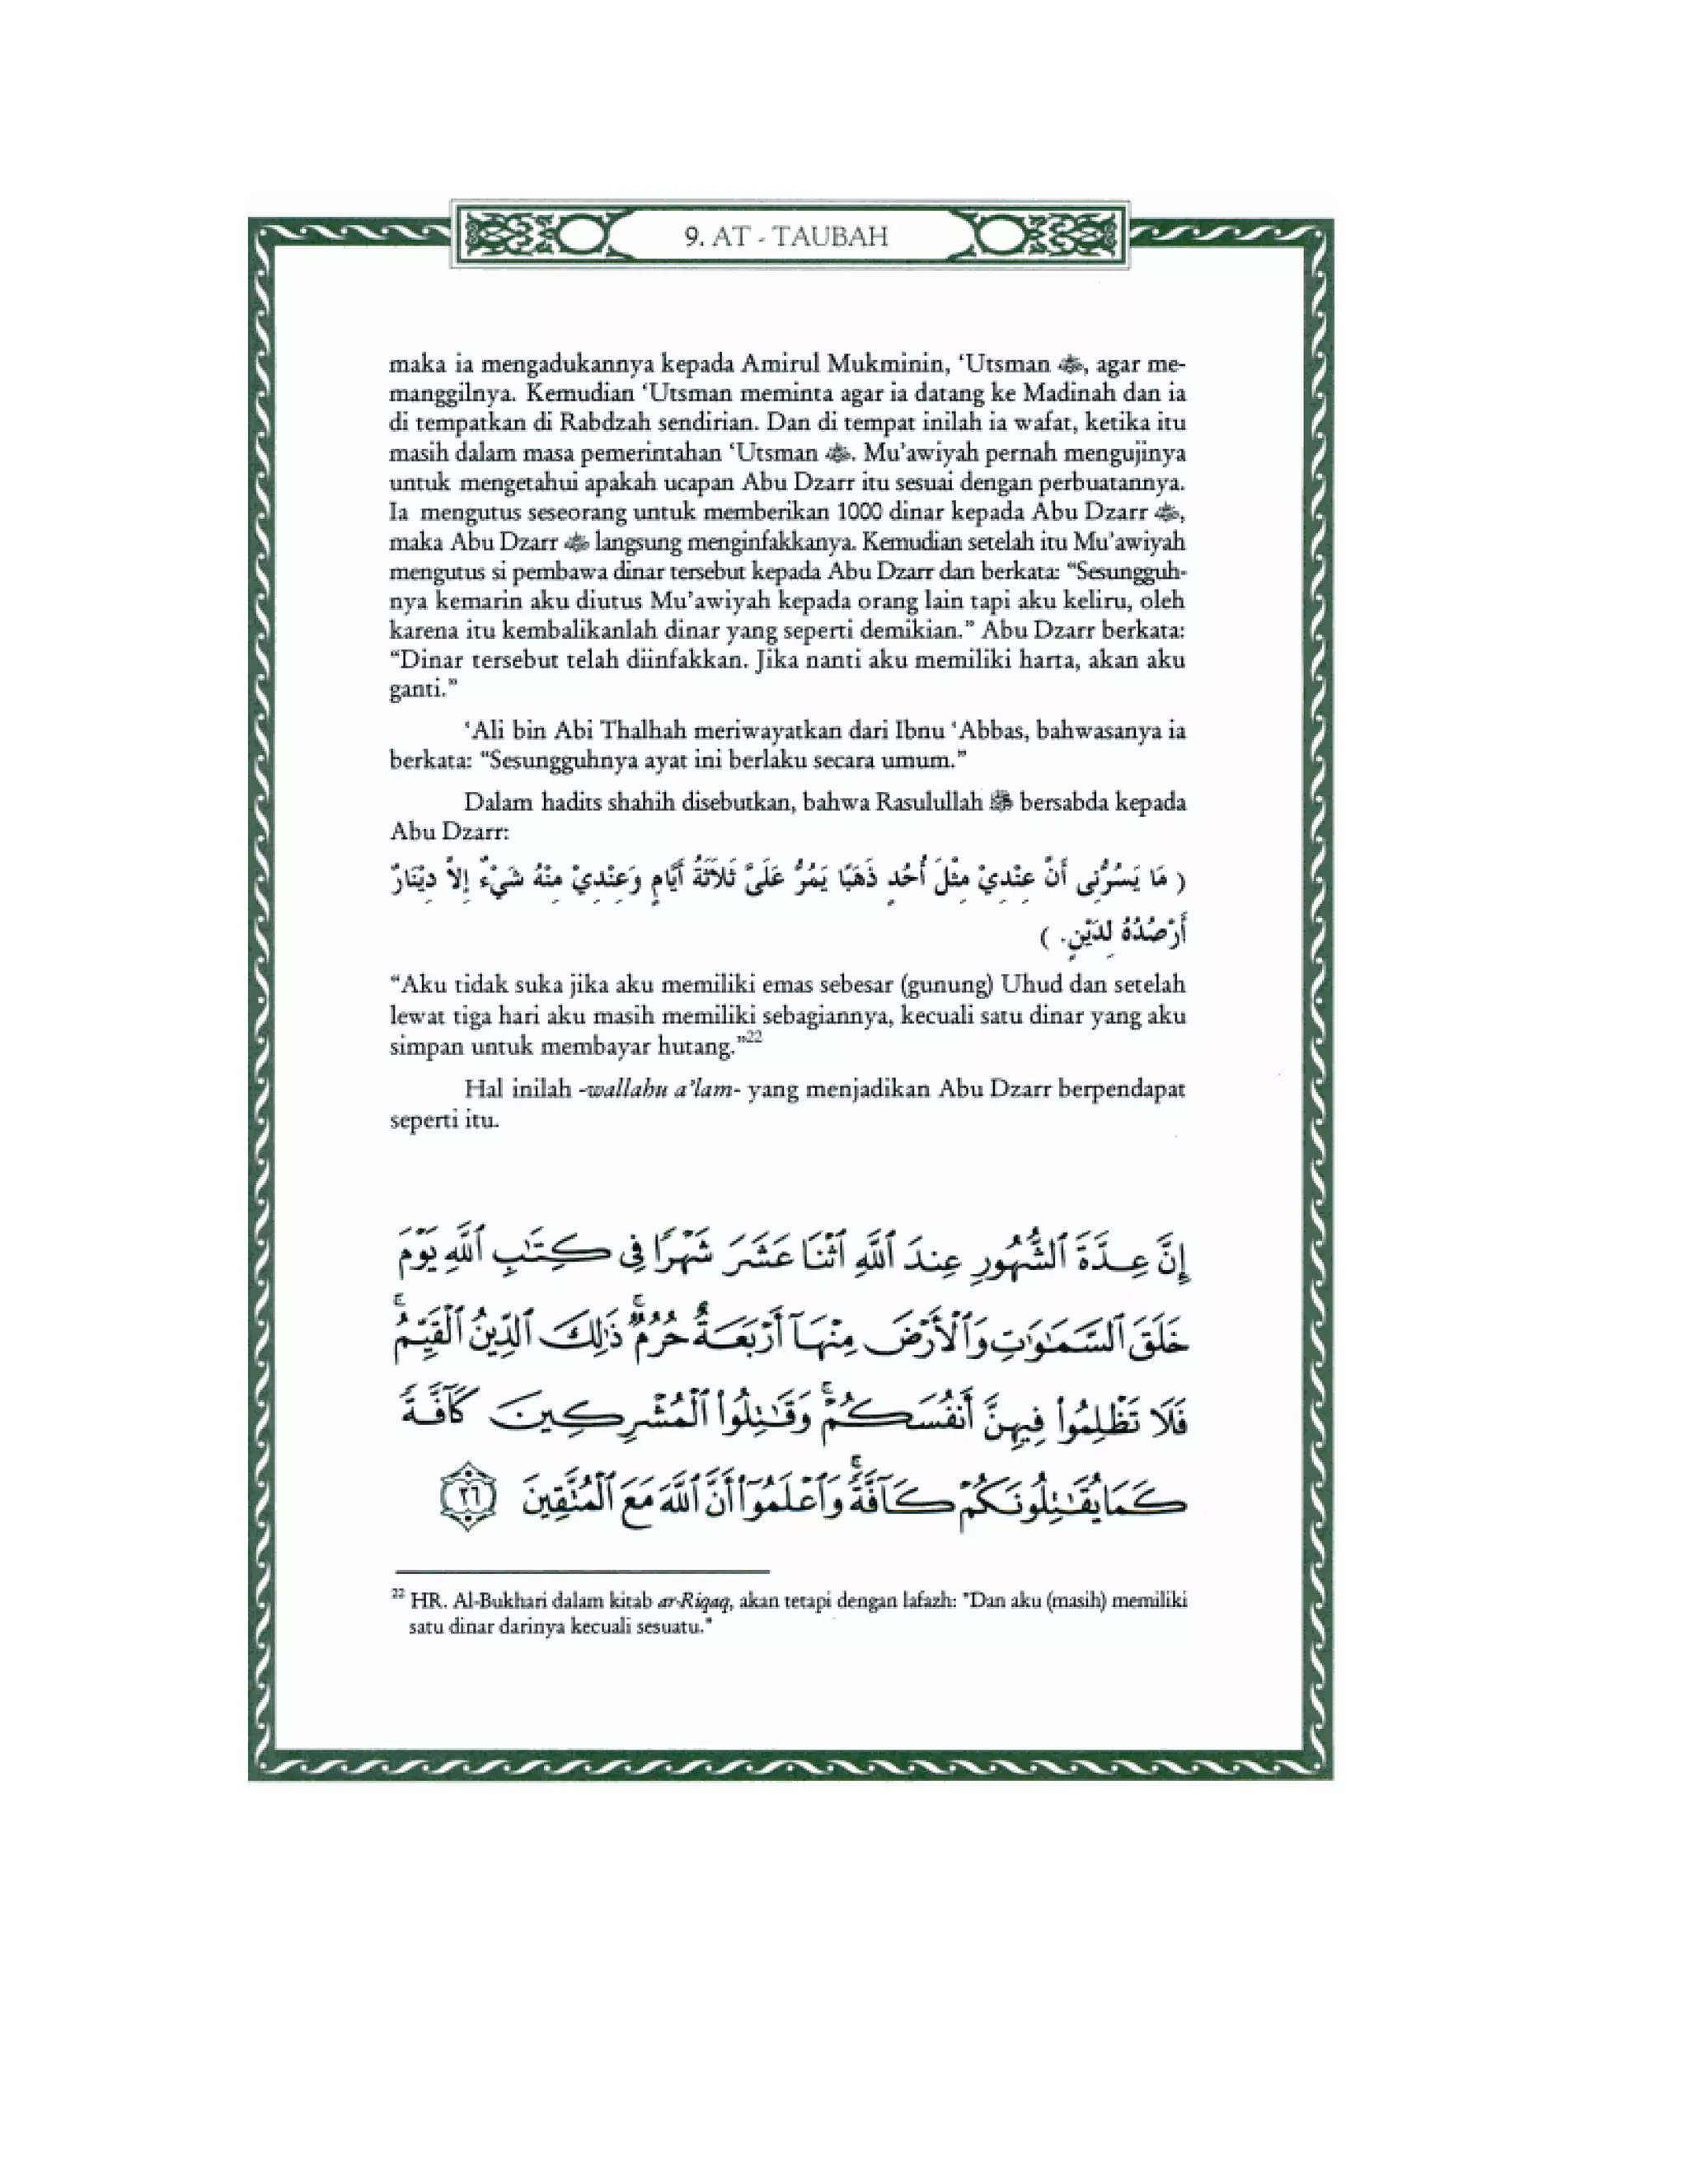 9. AT - TAUBAH
maka ia mengadukannya kepada Amirul Mukminin, ‘Utsman ؓ, agar me-
manggilnya. Kemudian ‘Utsman meminta agar ia datang ke Madinah dan ia
di tempatkan di Rabdzah sendirian. Dan di tempat inilah ia wafat, ketika itu
masih dalam masa pemerintahan ‘Utsman ؓ. Mu’awiyah pernah mengujinya
untuk mengetahui apakah ucapan Abu Dzarr itu sesuai dengan perbuatannya.
Ia mengutus seseorang untuk memberikan 1000 dinar kepada Abu Dzarr ؓ,
maka Abu Dzarr ؓ langsung menginfakkanya. Kemudian setelah itu Mu’awiyah
mengutus si pembawa dinar tersebut kepada Abu Dzarr dan berkata: “Sesungguh-
nya kemarin aku diutus Mu’awiyah kepada orang lain tapi aku keliru, oleh
karena itu kembalikanlah dinar yang seperti demikian.” Abu Dzarr berkata:
“Dinar tersebut telah diinfakkan. Jika nanti aku memiliki harta, akan aku
ganti.”
‘Ali bin Abi Thalhah meriwayatkan dari Ibnu ‘Abbas, bahwasanya ia
berkata: “Sesungguhnya ayat ini berlaku secara umum.”
Dalam hadits shahih disebutkan, bahwa Rasulullah ﷺ bersabda kepada
Abu Dzarr:
( مَا يَسُرُّنِى أَنَّ عِنْدِيْ مِثْلَ أُحُدٍ ذَهَبًا يَمُرُّ عَلَىَّ ثَلاَثَةُ أَيَّامٍ وَعِنْدِيْ مِنْهُ شَيْءٌ إِلاَّ دِيْنَارٌ
أَرْصُدُهُ لِدَيْنٍ. )
“Aku tidak suka jika aku memiliki emas sebesar (gunung) Uhud dan setelah
lewat tiga hari aku masih memiliki sebagiannya, kecuali satu dinar yang aku
simpan untuk membayar hutang.”22
Hal inilah -wallahu a’lam- yang menjadikan Abu Dzarr berpendapat
seperti itu.
إِنَّ عِدَّةَ ٱلشُّهُورِ عِندَ ٱللَّهِ ٱثْنَا عَشَرَ شَهْرًا فِى كِتَٰبِ ٱللَّهِ يَوْمَ
خَلَقَ ٱلسَّمَٰوَٰتِ وَٱلْأَرْضَ مِنْهَآ أَرْبَعَةٌ حُرُمٌ ۚ ذَٰلِكَ ٱلدِّينُ ٱلْقَيِّمُ ۚ
فَلَا تَظْلِمُوا۟ فِيهِنَّ أَنفُسَكُمْ ۚ وَقَٰتِلُوا۟ ٱلْمُشْرِكِينَ كَآفَّةً
كَمَا يُقَٰتِلُونَكُمْ كَآفَّةً ۚ وَٱعْلَمُوٓا۟ أَنَّ ٱللَّهَ مَعَ ٱلْمُتَّقِينَ ٣٦
22 HR. Al-Bukhari dalam kitab ar-Riqaq, akan tetapi dengan lafazh: "Dan aku (masih) memiliki
satu dinar darinya kecuali sesuatu."